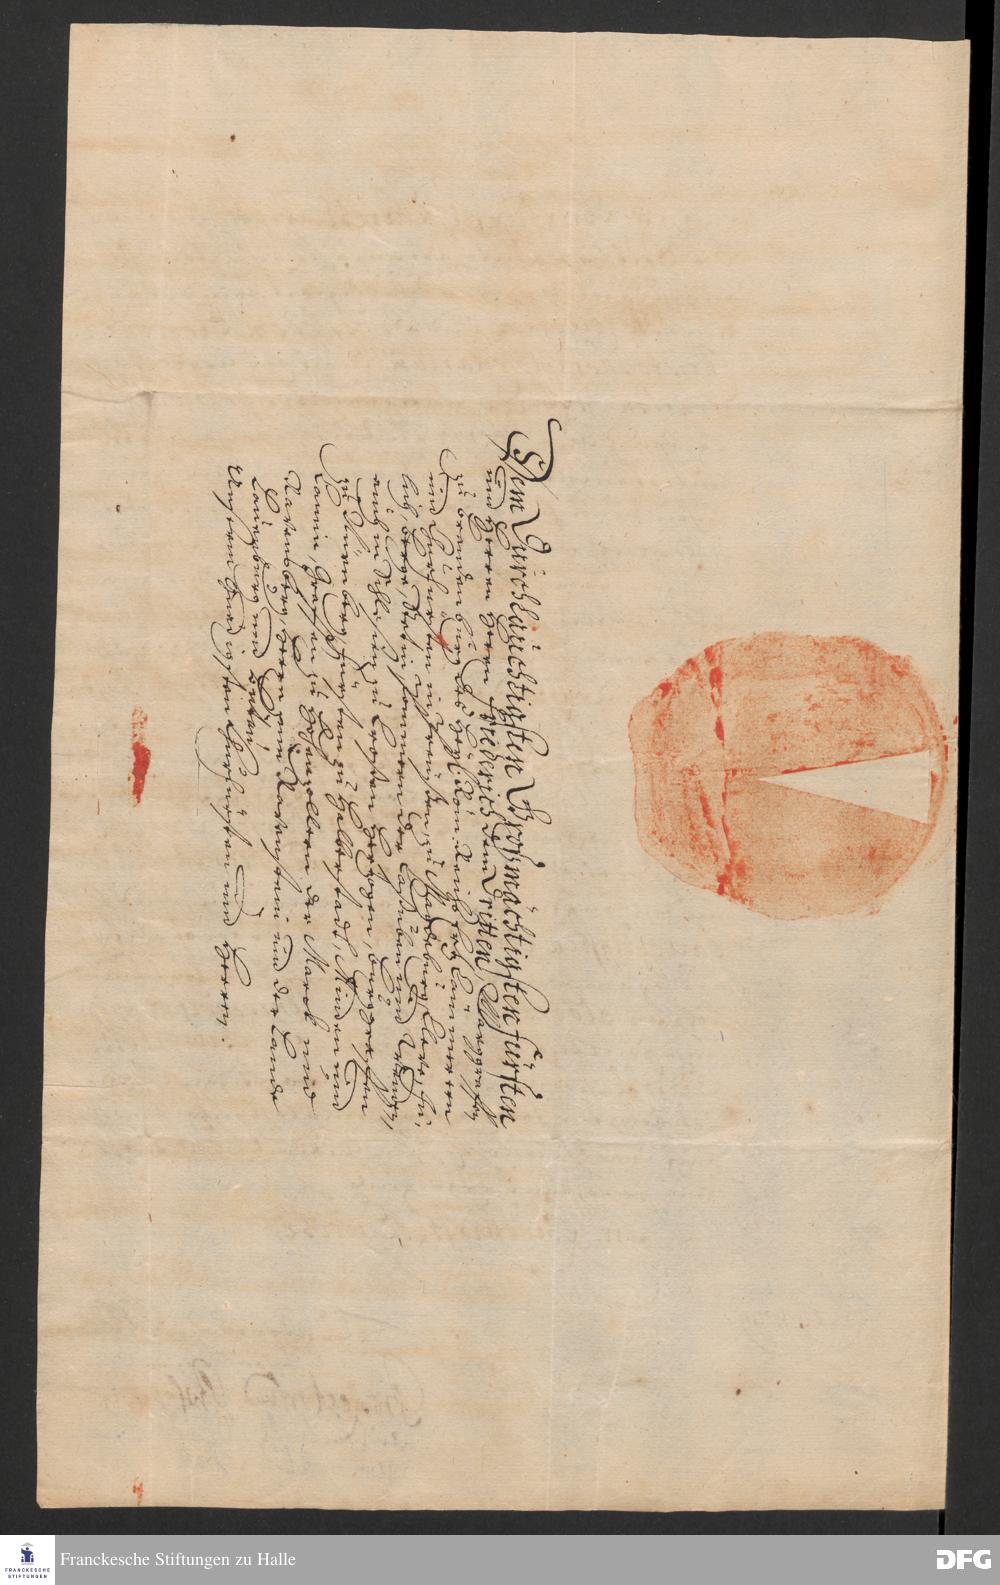 Dem Durchlauchtigsten Großmächtigsten Fürsten
und Herren Herrn Friederich dem Dritten, Marggraffen
zu Brandenburg, des Heyl. Röm. Reichs Ertz Cämmerern
und Churfürsten, in Preüßen, zu Magdeburg, Cleve, Jü,
lich, Berge, Stettin, Pommern, der Caßuben und Wenden,
auch in Schlesien, zu Croßen Hertzogen, Burggraffen
zu Nürnberg, Fürsten zu Halberstadt, Minden und
Camin, Graffen zu Hohenzollern, der Marck und
Ravensberg, Herrn zum Ravenstein und der Lande
Lauenburg und Bütau,
Unserm Gnädigsten Churfürsten und Herrn.
Franckesche Stiftungen zu Halle
FRANCKESCHE
STIFTUNGEN
DFG